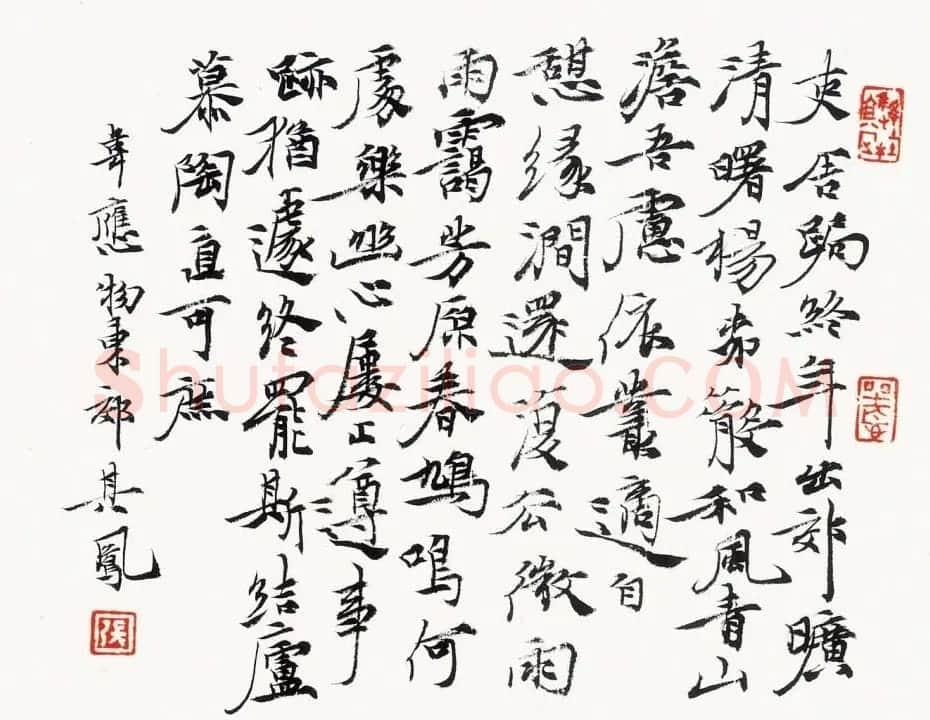 吏舍跼終年出郊曠
清曙楊柳散和風青山
澹吾慮依叢適自
憩緣澗還復去微雨
雨靄芳原春鳩鳴何
處樂幽心屢止遵事
跡猶遽終罷斯結廬
慕陶直可庶
韋應物東郊其鳳
Shufaziliao.COM